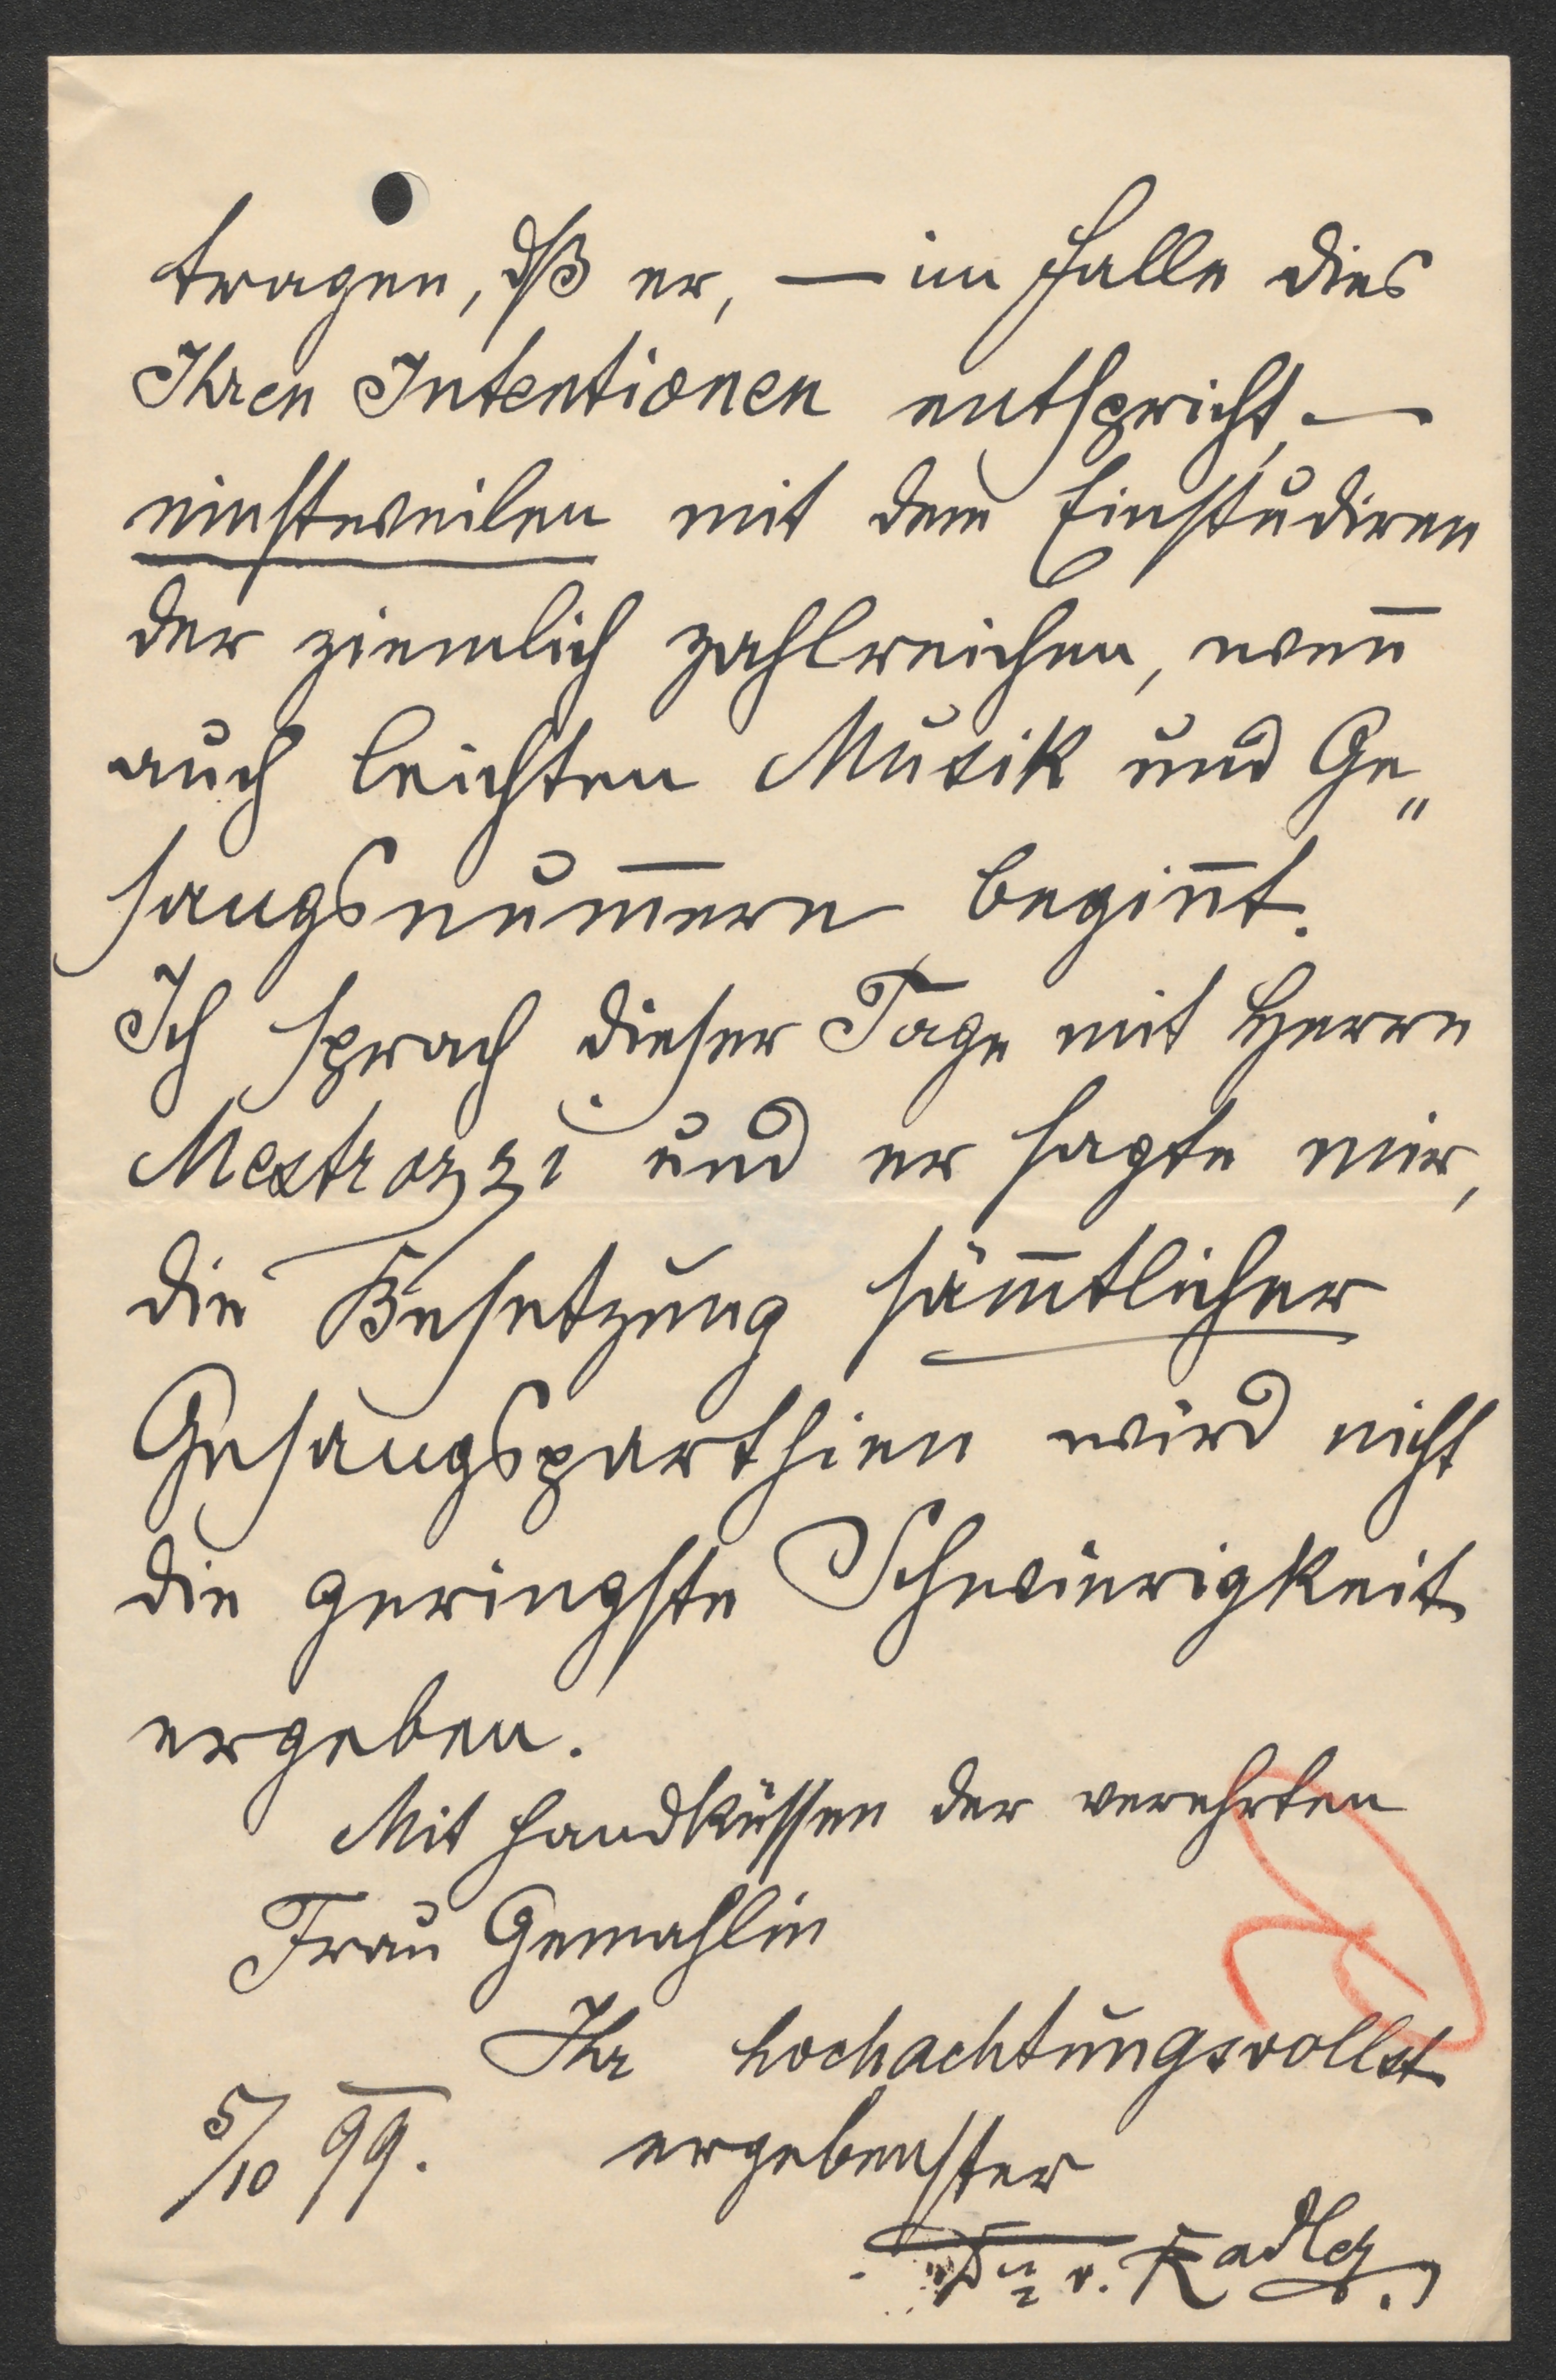 tragen, dß er, — im Falle dies
Ihren Intentionen entspricht, —
einstweilen mit dem Einstudiren
der ziemlich zahlreichen, weñ
auch leichten Musik und Ge„
sangsnum̅ern begiñt.
Ich sprach dieser Tage mit Herrn
Mestrozzi und er sagte mir,
die Besetzung säm̅tlicher
Gesangsparthien wird nicht
die geringste Schwierigkeit
ergeben.
Mit Handküssen der verehrten
Frau Gemahlin
Ihr hochachtungsvollst
5/10 99. ergebenster
v. Radler